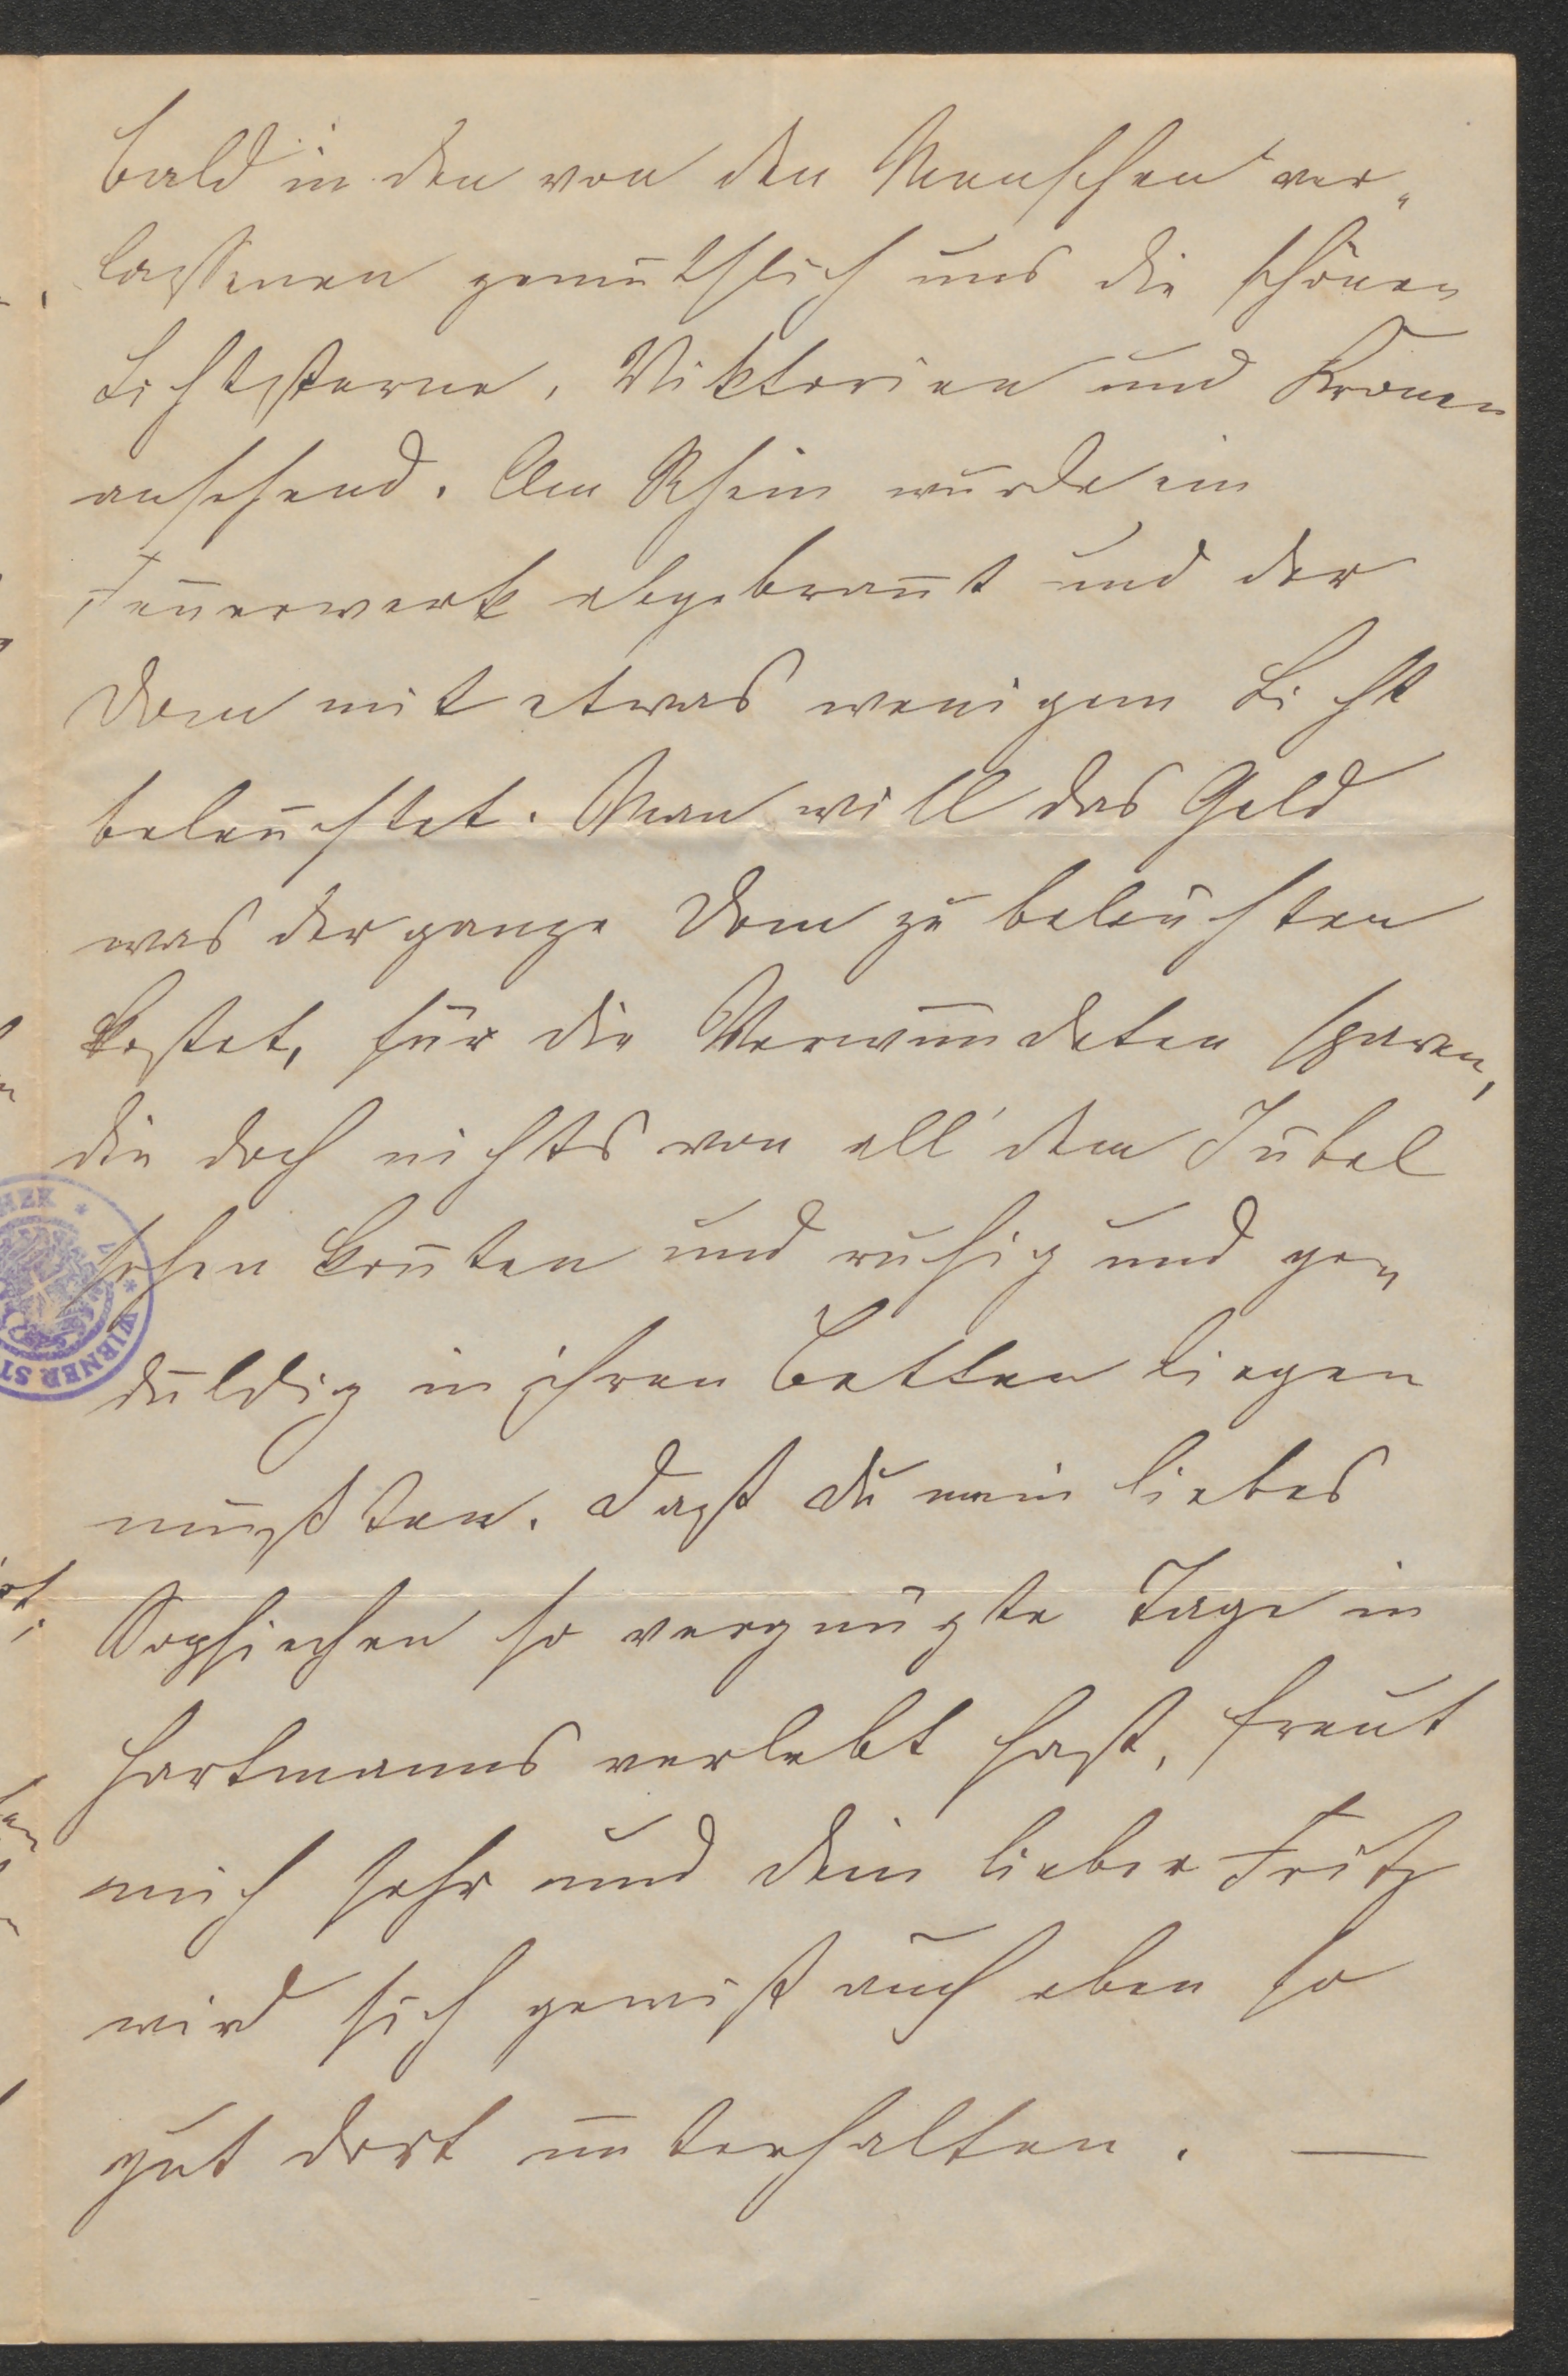 bald in den von den Menschen ver„
lassenen gemüthlich uns die schönen
Lichtsterne, Viktorien und Kronen
ansehend. Am Rhein wurde ein
Feuerwerk abgebrannt und der
Dom mit etwas wenigem Licht
beleuchtet. Man will das Geld
was der ganze Dom zu beleuchten
kostet, für die Verwundeten sparen,
die doch nichts von all' dem Jubel
sehen konnten und ruhig und ge„
duldig in ihren Betten liegen
mußten. Daß du mein liebes
Sophiechen so vergnügte Tage in
Hartmanns verlebt hast, freut
mich sehr und dein lieber Fritz
wird sich gewiß auch eben so
gut dort unterhalten. —
WIENER ST